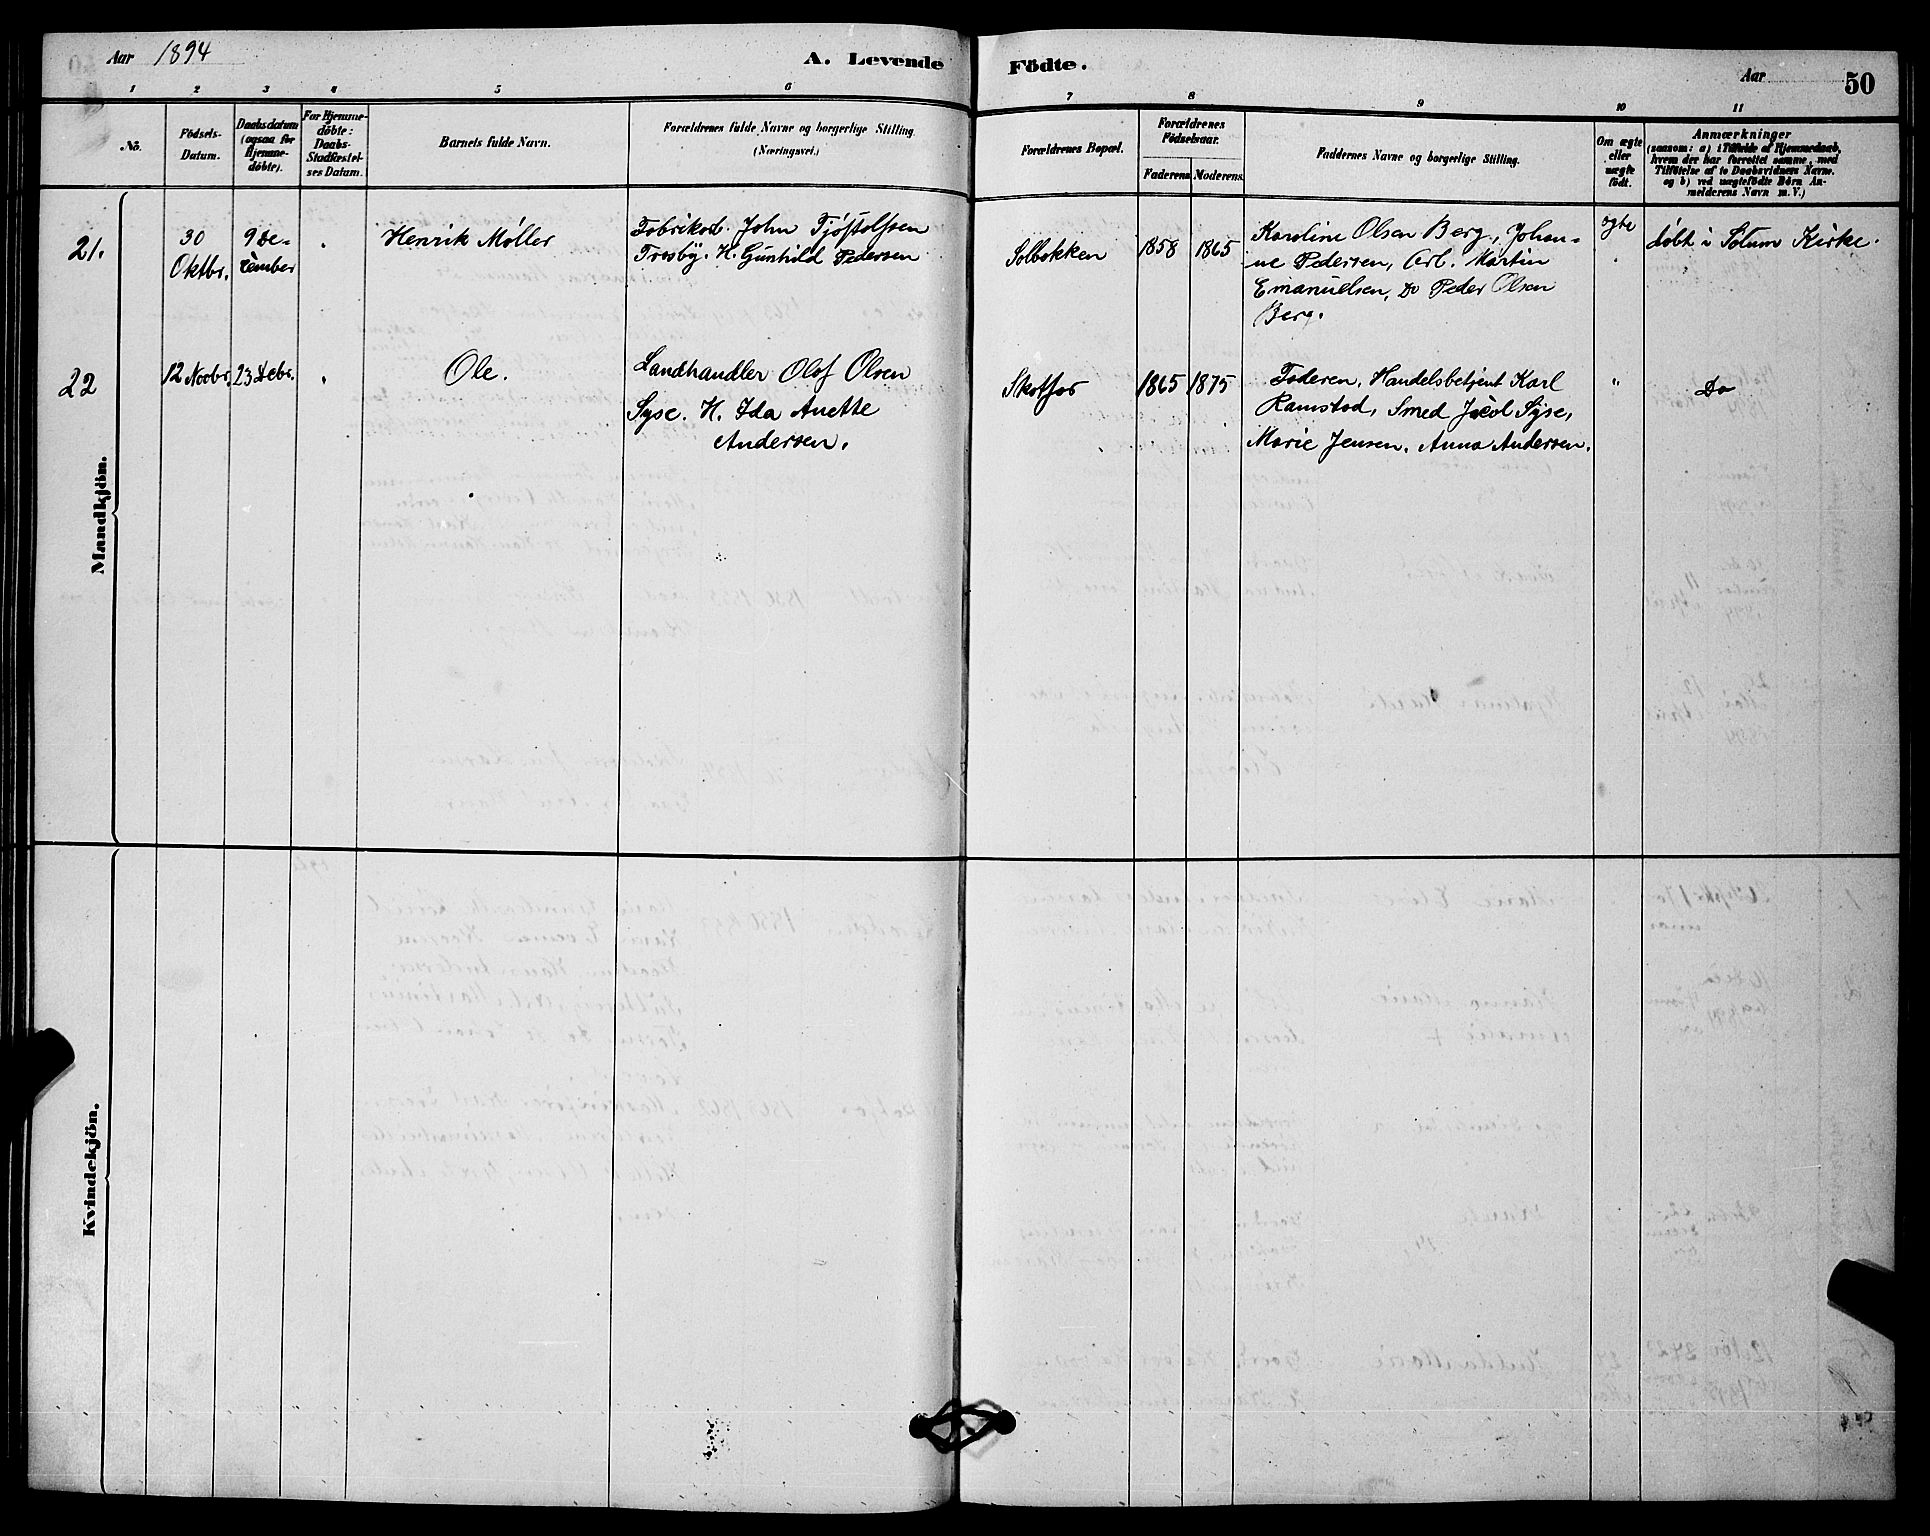 Aar 1894 A. Levende Födte. Aar 50
1 2 3 4 5 6 7 8 9 10 11
No. Födsels-Datum. Daabsdatum (ogsaa for Hjemmedöbte). For Hjemmedöbte: Daabs-Stadfæstelses Datum. Barnets fulde Navn. Forældrenes fulde Navne og borgerlige Stilling. (Næringsvei.) Forældrenes Bopæl. Forældrenes Födselsaar. Faderens Moderens. Faddernes Navne og borgerlige Stilling. Om ægte eller uægte födt. Anmærkninger
(saasom: a) i Tilfælde af Hjemmedaab,
hvem der har forrettet samme, med
Tilföielse af to Daabsvidners Navne.
og b) ved uægtefödte Börn An-
melderens Navn m. V.)
Mandkjön.
21. 30 Oktbr. 9 De-cember " Henrik Møller
Fabrikarb. John Tjøstolfsen
Træsby. H. Gunhild Pedersen
Solbakken 1858 1865
Karoline Olsen Berg, Johan-
ne Pedersen, Arb. Martin
Emanuelsen, Do Peder Olsen
Berg.
ægte
døbt i Solum Kirke.
22 12 Novbr. 23 Debr. " Ole.
Landhandler Olof Olsen
Syse. H. Ida Anette
Andersen.
Skotfos 1865 1875
Faderen, Handelsbetjent Karl
Ramstad, Smed Jacob Syse,
Marie Jensen, Anna Andersen.
" Do
Kvindekjön.